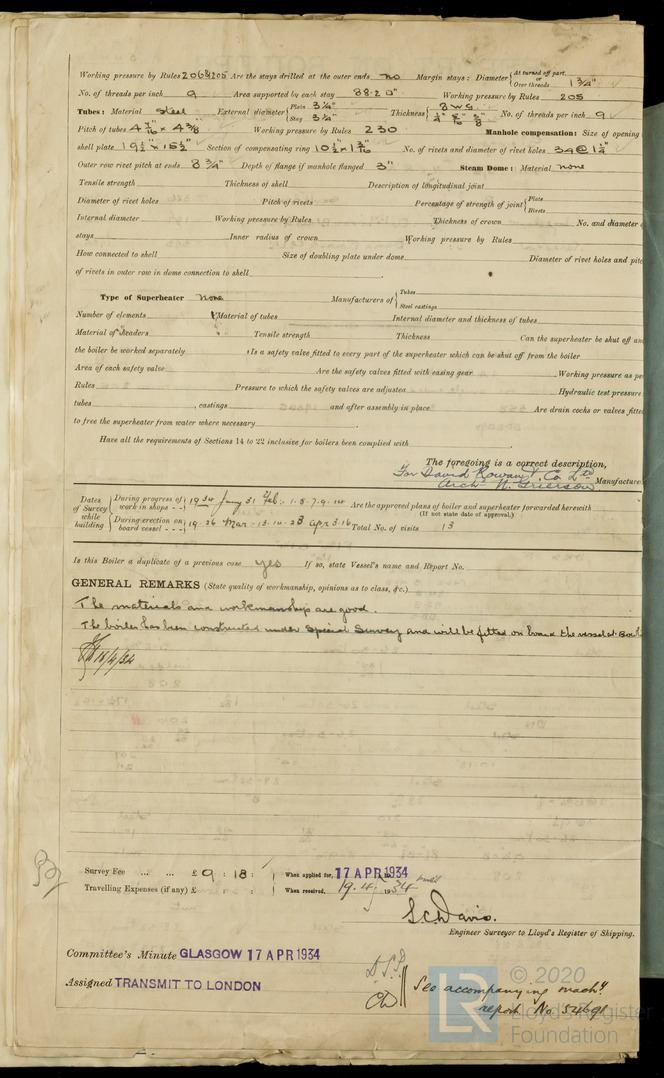 Working pressure by Rules 206 & 205 Are the stays drilled at the outer ends no Margin stays: Diameter { At turned off part, or Over threads 1 3/4"
No. of threads per inch 9 Area supported by each stay 88.2 □" Working pressure by Rules 205
Tubes: Material Steel External diameter { Plain 3 1/4" Stay 3 1/4" Thickness { 8 W G 1/4" 5/16" 3/8" No. of threads per inch 9
Pitch of tubes 4 7/16" × 4 3/8" Working pressure by Rules 230 Manhole compensation: Size of opening
shell plate 19 1/2" × 15 1/2" Section of compensating ring No. of rivets and diameter of rivet holes 34 @ 1 1/4"
Outer row rivet pitch at ends 8 3/4" Depth of flange if manhole flanged 3" Steam Dome: Material none
Tensile strength Thickness of shell Description of longitudinal joint
Diameter of rivet holes Pitch of rivets Percentage of strength of joint { Plate Rivets
Internal diameter Working pressure by Rules Thickness of crown No. and diameter
stays Inner radius of crown Working pressure by Rules
How connected to shell Size of doubling plate under dome Diameter of rivet holes and pitc
of rivets in outer row in dome connection to shell
Type of Superheater none Manufacturers of { Tubes Steel castings
Number of elements Material of tubes Internal diameter and thickness of tubes
Material of headers Tensile strength Thickness Can the superheater be shut off an
the boiler be worked separately Is a safety valve fitted to every part of the superheater which can be shut off from the boiler
Area of each safety valve Are the safety valves fitted with easing gear Working pressure as pe
Rules Pressure to which the safety valves are adjusted Hydraulic test pressure
tubes , castings and after assembly in place Are drain cocks or valves fitte
to free the superheater from water where necessary
Have all the requirements of Sections 14 to 22 inclusive for boilers been complied with
The foregoing is a correct description,
For David Rowan & Co Ltd
Arch. W. Grierson Manufacture
Dates of Survey while building { During progress of work in shops - - 1934 Jany 31 Feb: 1. 5. 7. 9. 14 Are the approved plans of boiler and superheater forwarded herewith
(If not state date of approval.)
During erection on board vessel - - - 19. 26 Mar. 13. 10. 23 Apr 3. 16 Total No. of visits 13
Is this Boiler a duplicate of a previous case yes If so, state Vessel's name and Report No.
GENERAL REMARKS (State quality of workmanship, opinions as to class, &c.)
The materials and workmanship are good.
The boiler has been constructed under Special Survey and will be fitted on board the vessel at
16/4/34
Survey Fee ... ... £ 9 : 18 : When applied for, 17 APR 1934
Travelling Expenses (if any) £ : : When received, 19. 4. 1934
S. C. Davis.
Engineer Surveyor to Lloyd's Register of Shipping.
Committee's Minute GLASGOW 17 APR 1934
Assigned TRANSMIT TO LONDON
See accompanying machy
report No 54691
LR © 2020
Lloyd's Register
Foundation